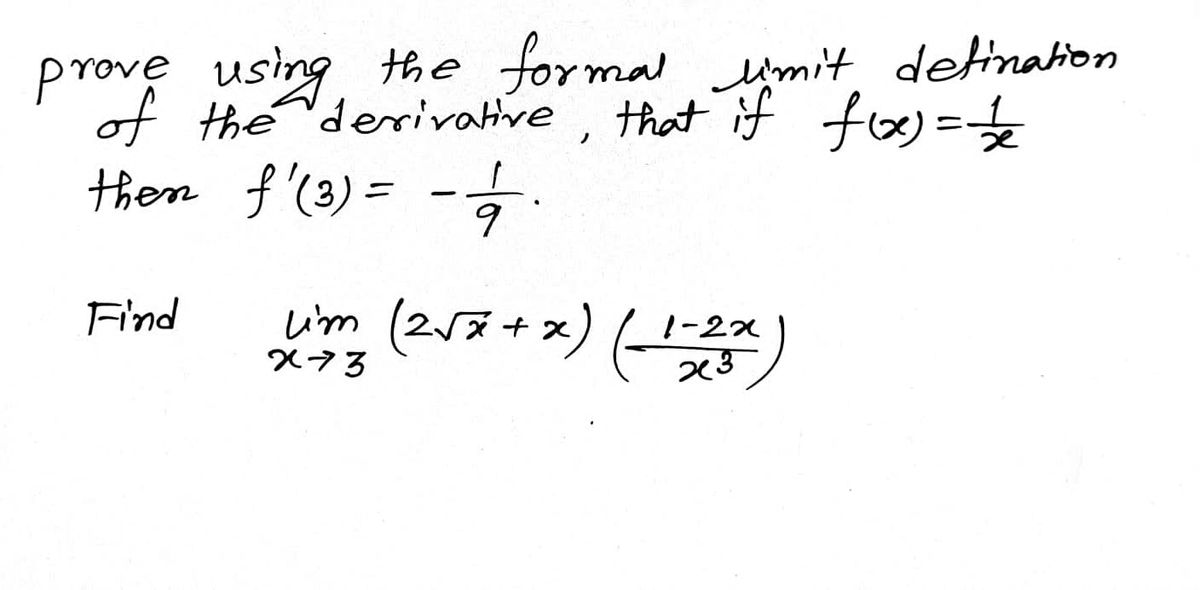 prove using the formal limit defination
of the derivative, that if f(x) = 1/x
then f'(3) = - 1/9.
Find lim x→3 (2√x + x) (1-2x / x^3)